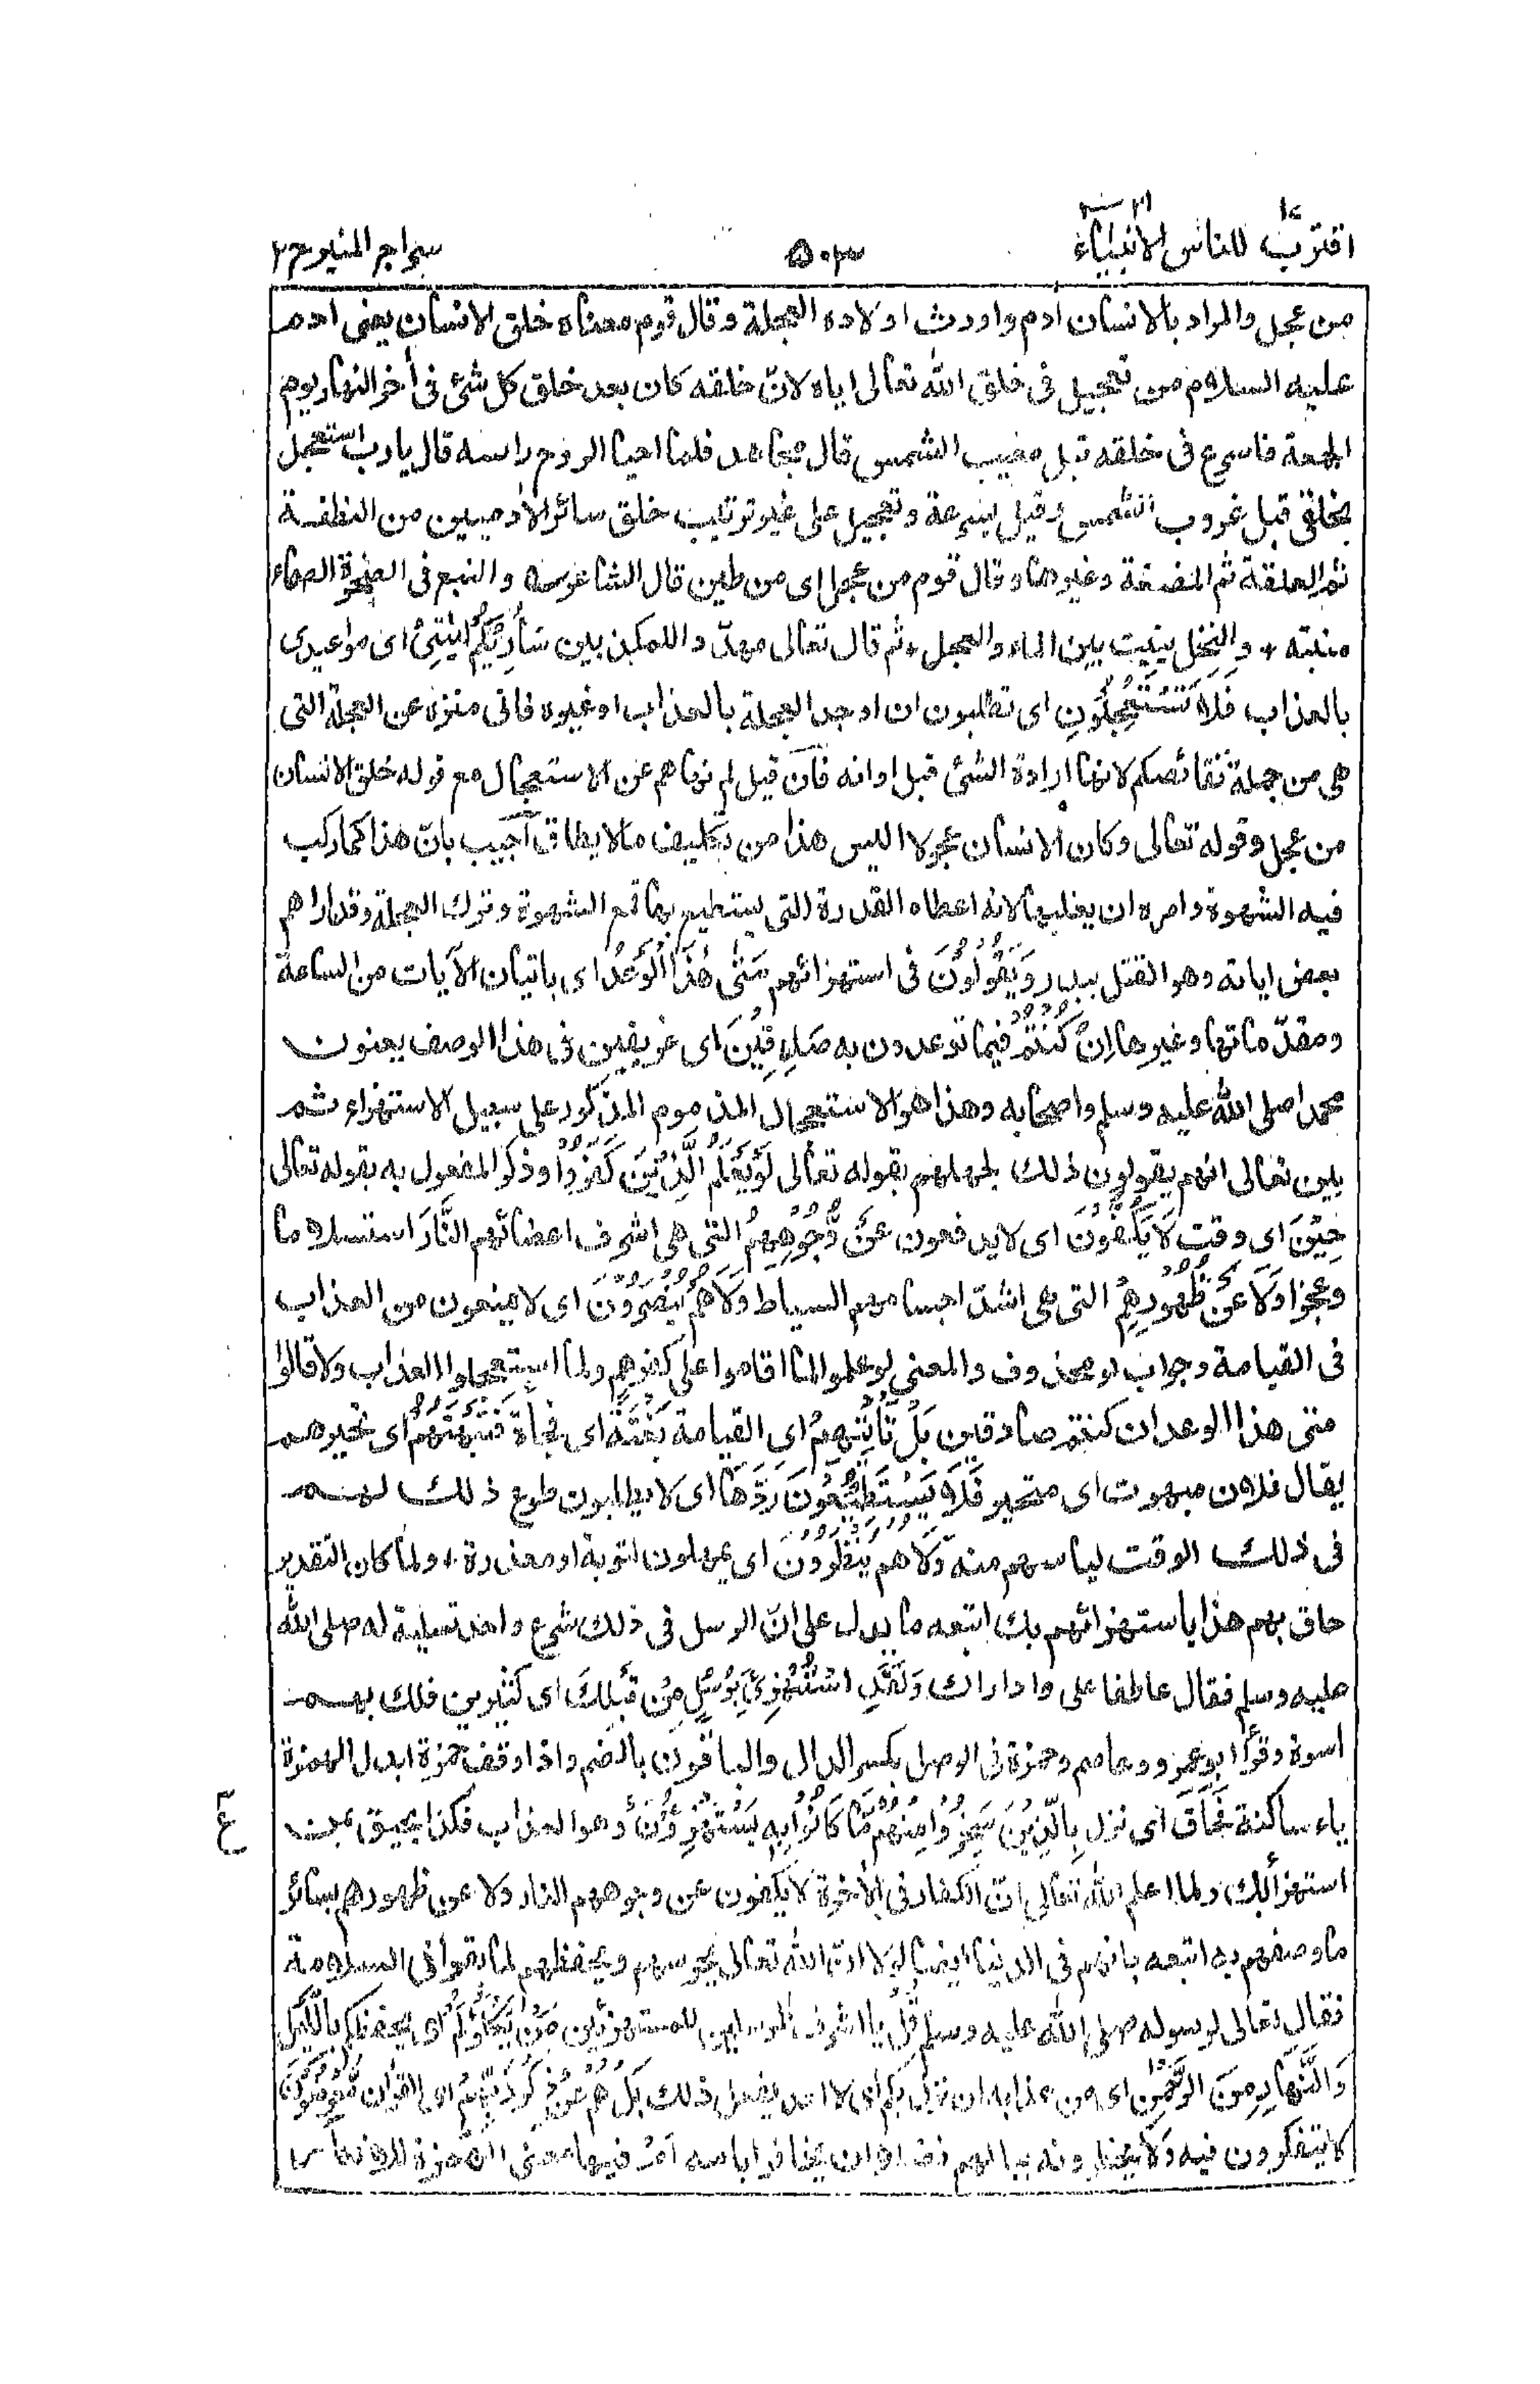 اقترب للناس ١٧ الانبياء ٢١
٥٠٣
سراج المنير ج ٢
من عجل والمراد بالانسان ادم واورث اولاده العجلة وقال قوم معناه خلق الانسان يعنى ادم
عليه السلام من تعجيل فى خلق الله تعالى اياه لانّ خلقه كان بعد خلق كل شئ فى أخر النهار يوم
الجمعة فاسرع فى خلقه قبل مغيب الشمس قال مجاهد فلما احيا الروح راسه قال يا رب استعجل
بخلقى قبل غروب الشمس وقيل بسرعة وتعجيل على غير ترتيب خلق سائر الأدميين من النطفة
ثم العلقة ثم المضغة وغيرها وقال قوم من عجل اى من طين قال الشاعر والنبع فى الصخرة الصماء
منبته * والنخل ينبت بين الماء والعجل * ثم قال تعالى مهدّدا للمكذبين سَأُرِيْكُمْ اٰيٰتِىْ اى مواعيدى
بالعذاب فَلَا تَسْتَعْجِلُوْنِ اى تطلبون ان اوجد العجلة بالعذاب او غيره فانى منزه عن العجلة التى
هى من جملة نقائصكم لانها ارادة الشئ قبل اوانه فان قيل لم نهاهم عن الاستعجال مع قوله خلق الانسان
من عجل وقوله تعالى وكان الانسان عجولا اليس هذا من تكليف ما لا يطاق أجيب بانّ هذا كما ركب
فيه الشهوة وامره ان يغلبها لانه اعطاه القدرة التى يستطيع بها قمع الشهوة وترك العجلة وقد اراهم
بعض اياته وهو القتل ببدر وَيَقُوْلُوْنَ فى استهزائهم مَتٰى هٰذَا الْوَعْدُ اى باتيان الآيات من الساعة
ومقدّماتها وغيرها اِنْ كُنْتُمْ فيما توعدون به صٰدِقِيْنَ اى عريقين فى هذا الوصف يعنون
محمدا صلى الله عليه وسلم واصحابه وهذا هو الاستعجال المذموم المذكور على سبيل الاستهزاء ثم
بين تعالى انهم يقولون ذلك لجهلهم بقوله تعالى لَوْ يَعْلَمُ الَّذِيْنَ كَفَرُوْا وذكر المفعول به بقوله تعالى
حِيْنَ اى وقت لَا يَكُفُّوْنَ اى لا يدفعون عَنْ وُّجُوْهِهِمُ التى هى اشرف اعضائهم النَّارَ استسلاما
وعجزا وَلَا عَنْ ظُهُوْرِهِمْ التى هى اشدّ اجسامهم السياط وَلَا هُمْ يُنْصَرُوْنَ اى لا يمنعون من العذاب
فى القيامة وجواب لو محذوف والمعنى لو علموا لما اقاموا على كفرهم ولما استعجلوا العذاب ولا قالوا
متى هذا الوعد ان كنتم صادقين بَلْ تَاْتِيْهِمْ اى القيامة بَغْتَةً اى فجأة فَتَبْهَتُهُمْ اى تحيرهم
يقال فلان مبهوت اى متحير فَلَا يَسْتَطِيْعُوْنَ رَدَّهَا اى لا يطلبون طوع ذلك لهم
فى ذلك الوقت لياسهم منه وَلَا هُمْ يُنْظَرُوْنَ اى يمهلون لتوبة او معذرة * ولما كان التقدير
حاق بهم هذا باستهزائهم بك اتبعه ما يدل على انّ الرسل فى ذلك شرع واحد تسلية له صلى الله
عليه وسلم فقال عاطفا على واذا راك وَلَقَدِ اسْتُهْزِئَ بِرُسُلٍ مِّنْ قَبْلِكَ اى كثيرين فلك بهم
اسوة وقرأ ابو عمرو وعاصم وحمزة فى الوصل بكسر الدال والباقون بالضم واذا وقف حمزة ابدل الهمزة
ياء ساكنة فَحَاقَ اى نزل بِالَّذِيْنَ سَخِرُوْا مِنْهُمْ مَّا كَانُوْا بِهٖ يَسْتَهْزِءُوْنَ وهو العذاب فكذا يحيق بمن
ع
استهزأ بك ولما اعلم الله تعالى انّ الكفار فى الأخرة لا يكفون عن وجوههم النار ولا عن ظهورهم بسائر
ما وصفهم به اتبعه بانهم فى الدنيا ايضا لولا انّ الله تعالى يحرسهم ويحفظهم لما بقوا فى السلامة
فقال تعالى لرسوله صلى الله عليه وسلم قُلْ يا اشرف المرسلين للمستهزئين مَنْ يَّكْلَؤُكُمْ اى يحفظكم بِالَّيْلِ
وَالنَّهَارِ مِنَ الرَّحْمٰنِ اى من عذابه ان نزل بكم اى لا احد يفعل ذلك بَلْ هُمْ عَنْ ذِكْرِ رَبِّهِمْ اى القرأن مُّعْرِضُوْنَ
لا يتفكرون فيه ولا يخطرونه ببالهم فضلا ان يخافوا باسه ام فيها معنى الهمزة للانكار